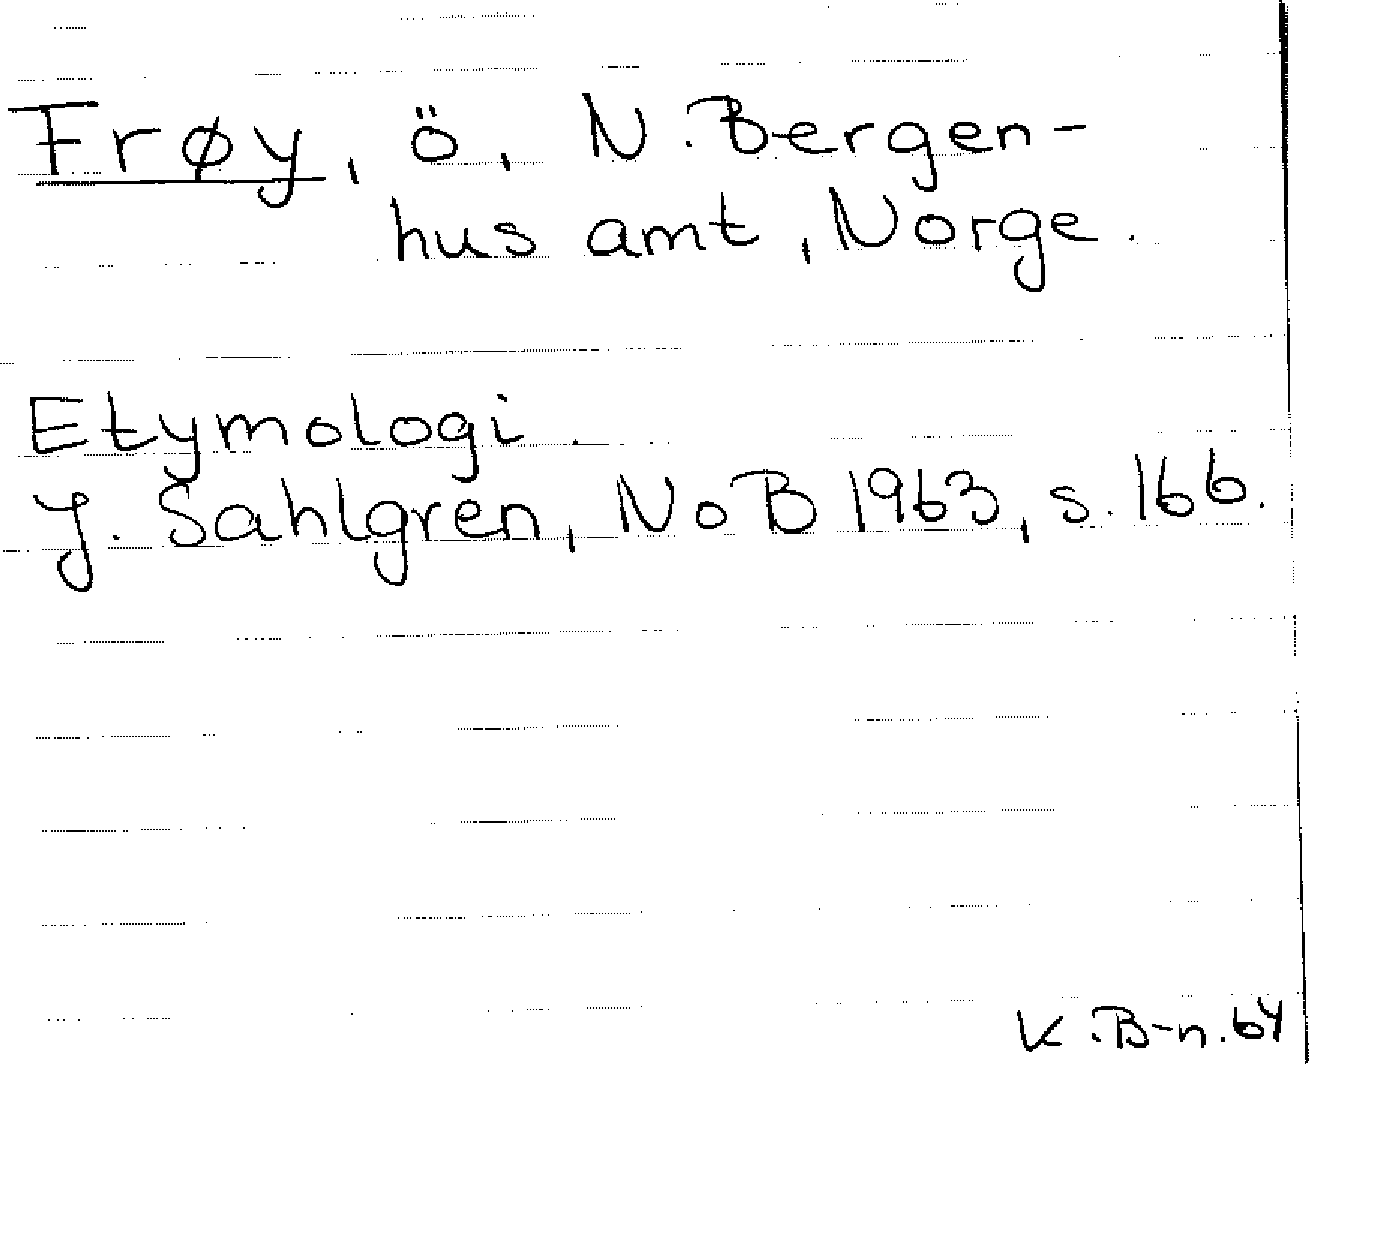 Frøy, ö, N. Bergen-
hus amt, Norge.
Etymologi.
J. Sahlgren, NoB 1963, s. 166.
K. B-n. 64